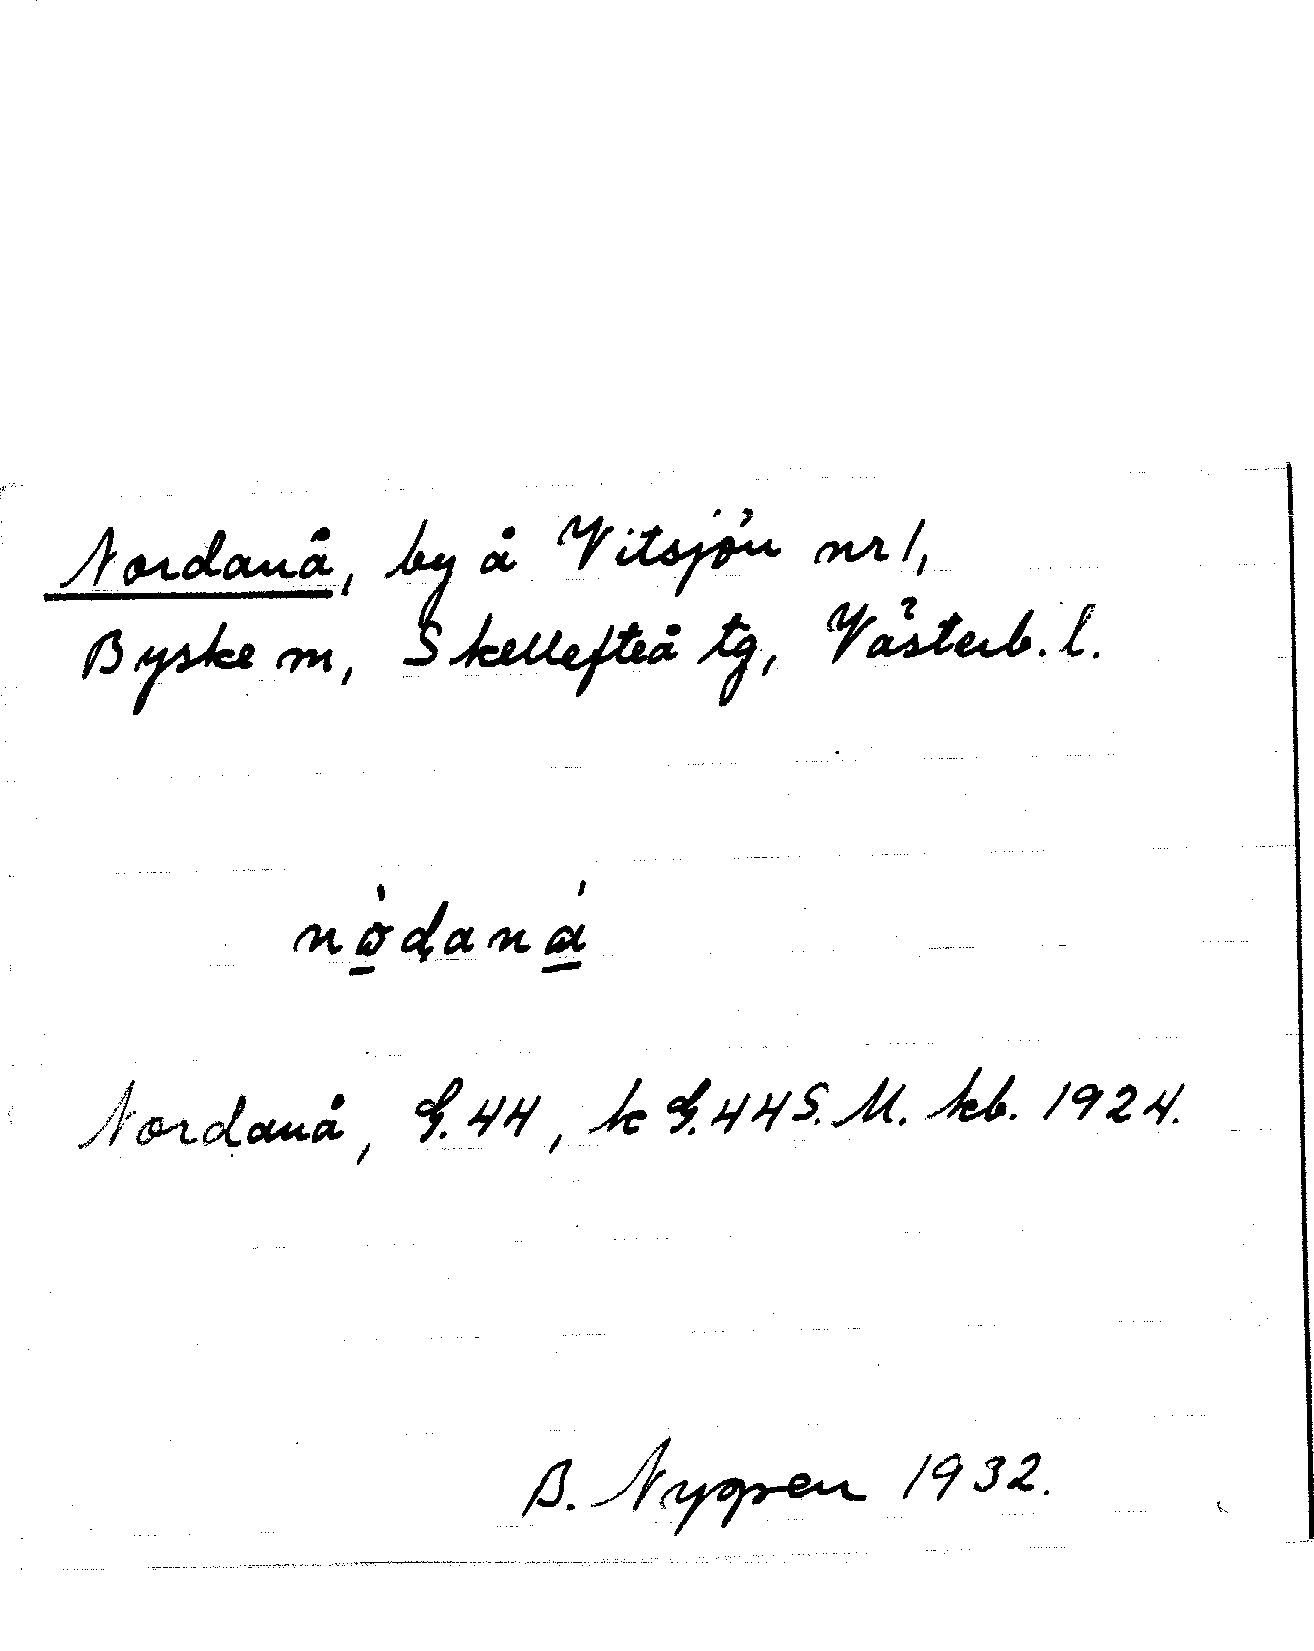 Nordanå, by å Vitsjön nr 1,
Byske m, Skellefteå tg, Västerb. l.
nò̱ḍaná̱
Nordanå, G. 44, k G. 44 S. M. kb. 1924.
B. Nygren 1932.